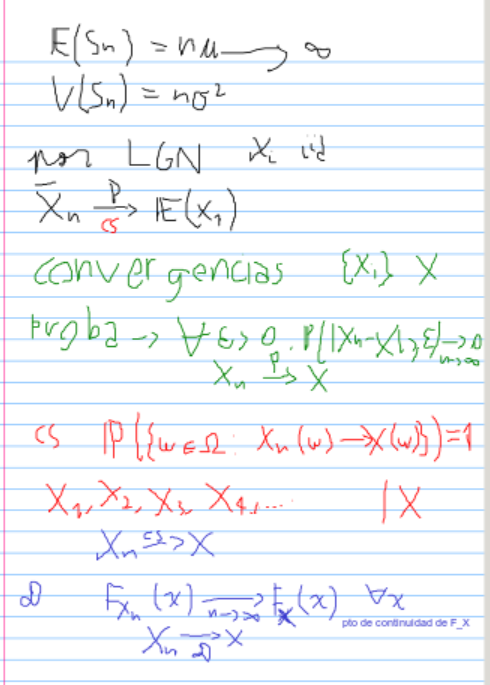 E(Sn) = nμ → ∞
V(Sn) = nσ²
por LGN Xi iid
X̄n →P cs E(X1)
convergencias {Xi} X
proba → ∀ε>0. P(|Xn-X|≥ε) →n→∞ 0
Xn →P X
cs P({w∈Ω: Xn(w)→X(w)})=1
X1, X2, X3, X4,... | X
Xn →cs X
D FXn(x) →n→∞ FX(x) ∀x
pto de continuidad de F_X
Xn →D X